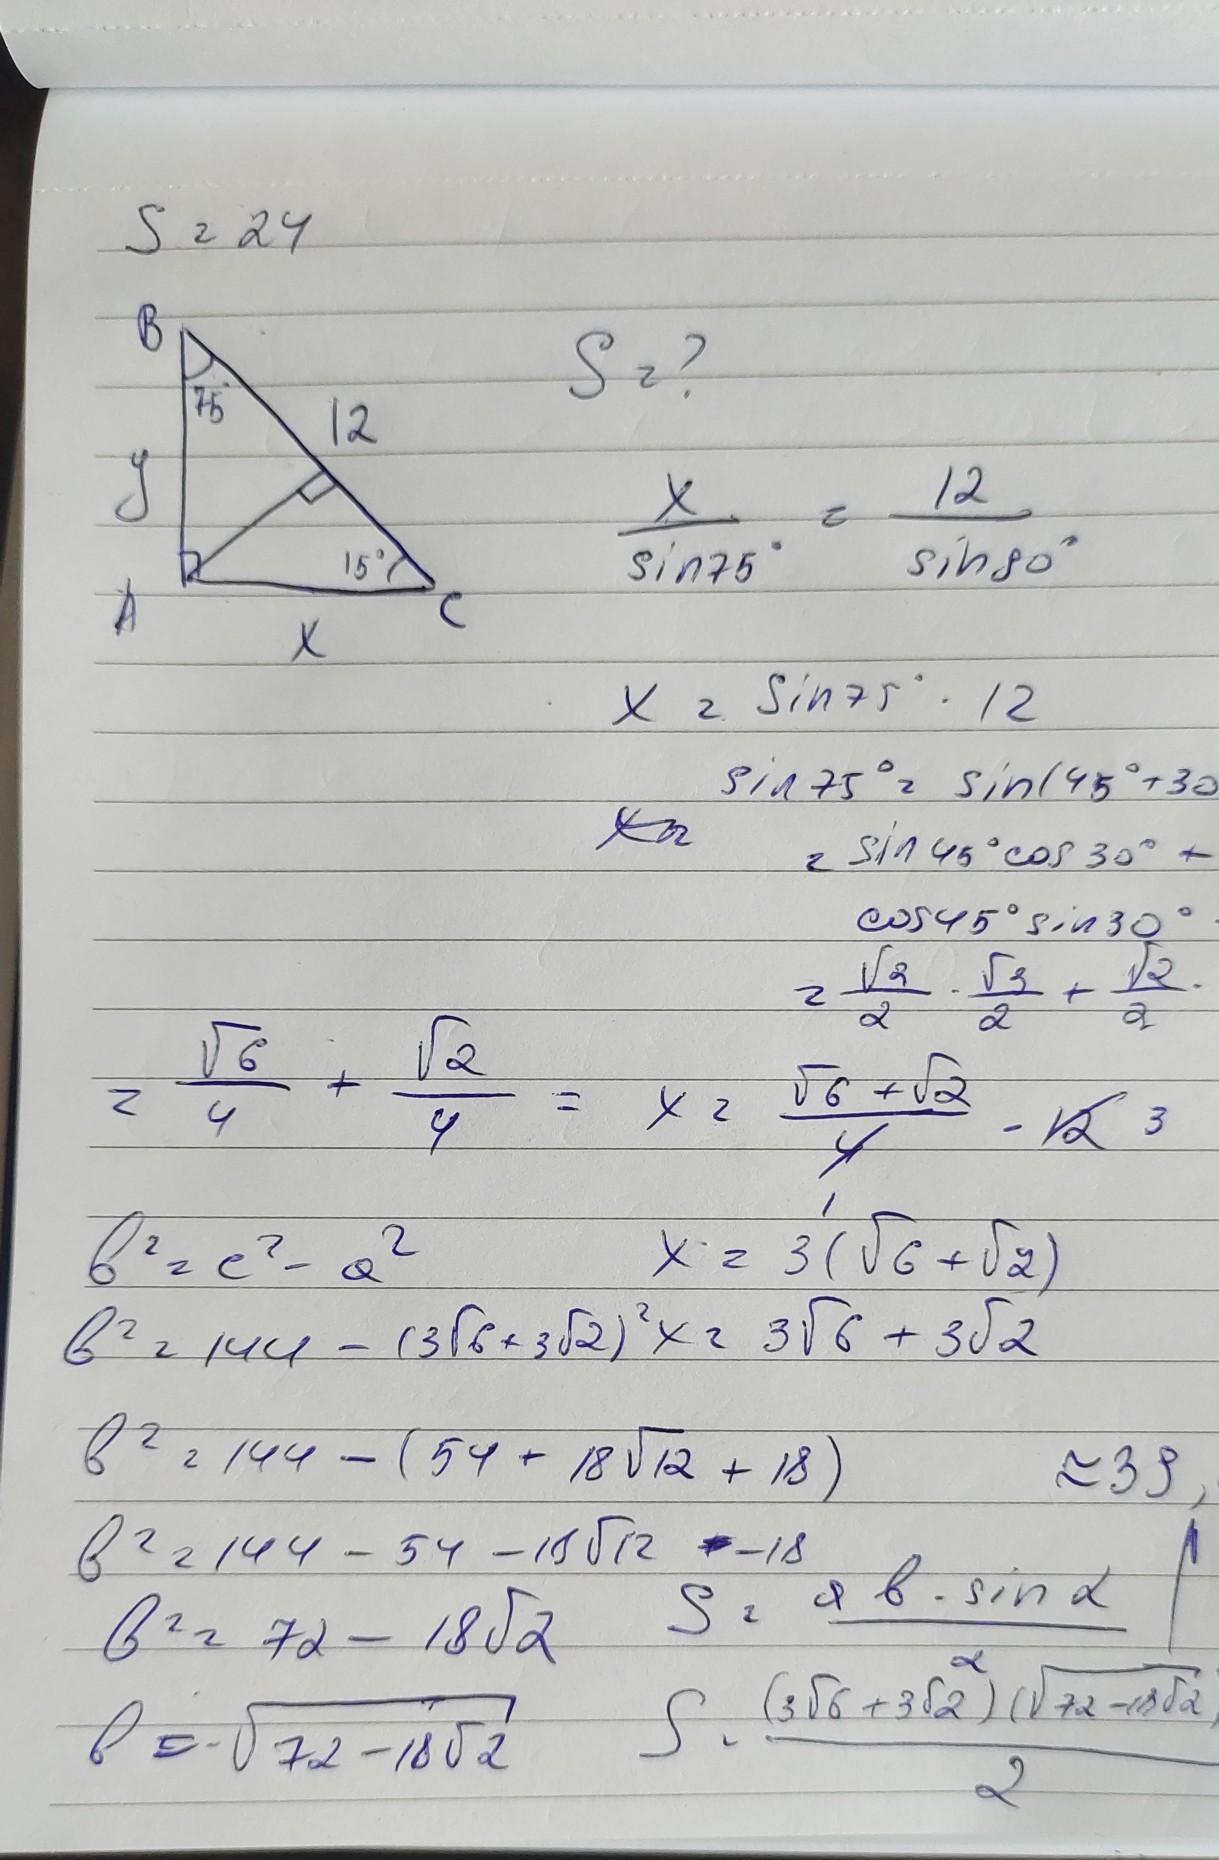 S = 24
B
75°
12
y
15°
A
x
C
S = ?
x / sin75° = 12 / sin90°
x = sin75° · 12
sin75° = sin(45°+30
= sin45°cos30° +
cos45°sin30°
= √2/2 · √3/2 + √2/2 ·
= √6/4 + √2/4 = x = (√6+√2)/4 · 12 3
1
b² = c² - a²
x = 3(√6+√2)
b² = 144 - (3√6+3√2)²
x = 3√6 + 3√2
b² = 144 - (54 + 18√12 + 18)
≈39,
b² = 144 - 54 - 18√12 - 18
S = ab·sinα / 2
b² = 72 - 18√2
b = √72-18√2
S = (3√6+3√2)(√72-18√2) / 2